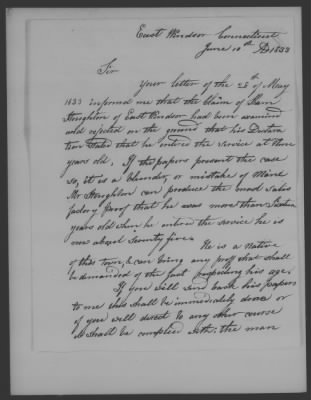 East Windsor Connecticut
June 10th AD 1833
Sir
Your letter of the 25th of May
1833 informed me that the Claim of Sam
Houghton of East Windsor had been examined
and rejected on the ground that his Declara
tion stated that he entered the service at
years old, If the papers present the case
so, it is a blunder, or mistake of Mine
Mr Houghton can produce the most satis
factory proof that he was more than Sixteen
years old when he entered the service he is
now about Seventy five. He is a native
of this town, & can bring any proof that shall
be demanded of the fact respecting his age.
If you will send back his papers
to me this shall be immediately done or
if you will direct to any other course
it shall be complied with; the man